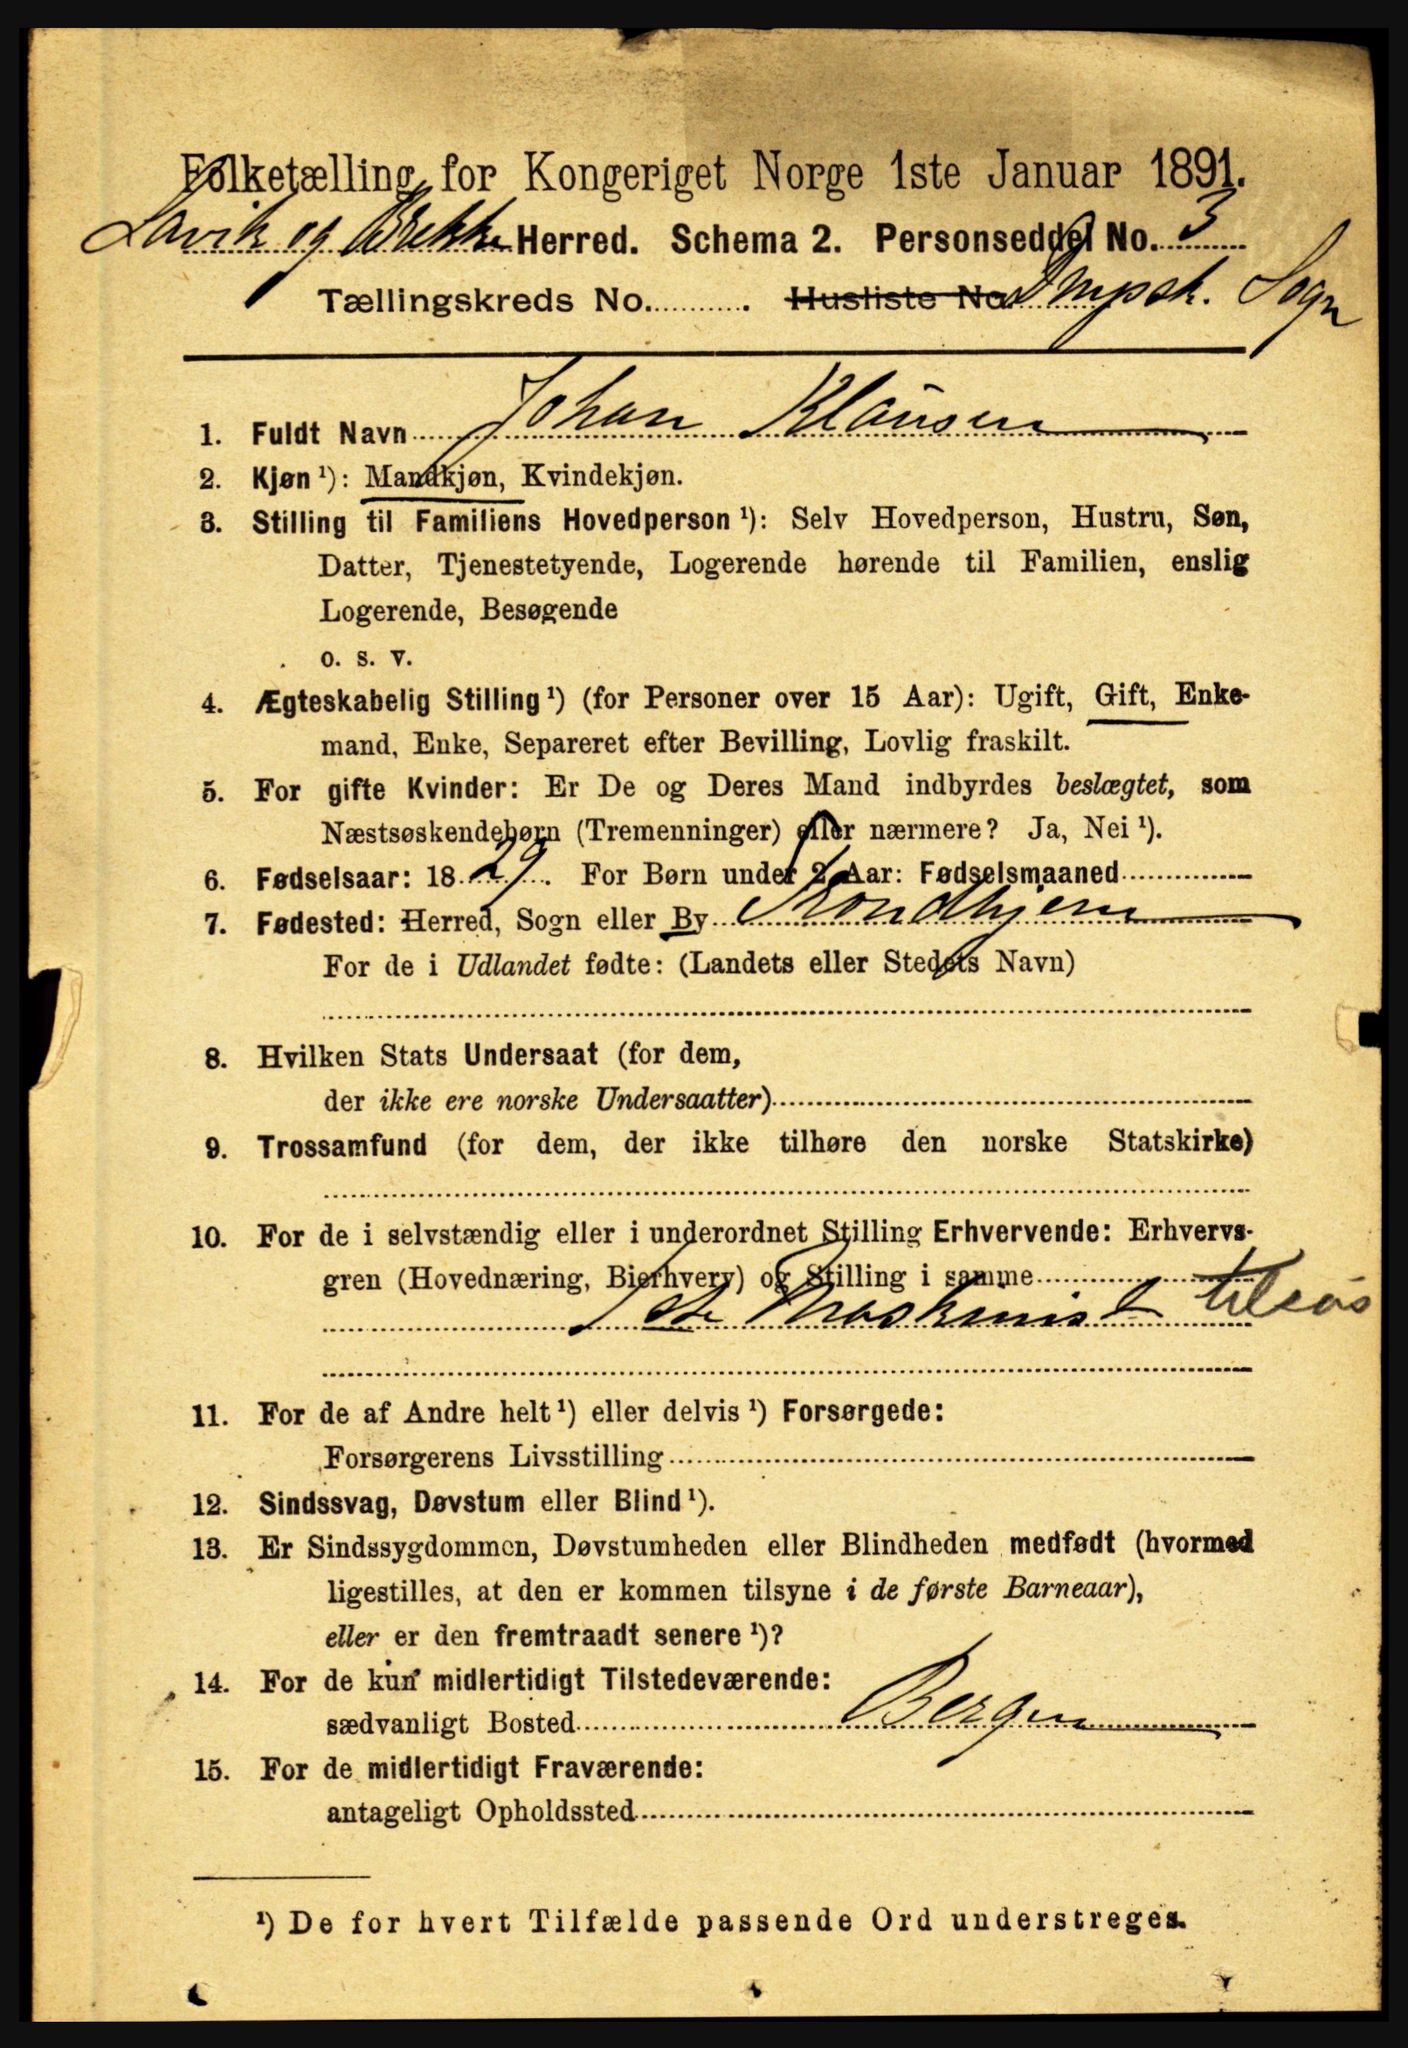 Folketælling for Kongeriget Norge 1ste Januar 1891.
Lavik og Brekke Herred. Schema 2. Personseddel No. 3
Tællingskreds No. Husliste No. Dmpsk. Sogn
1. Fuldt Navn Johan Klausen
2. Kjøn ¹): Mandkjøn, Kvindekjøn.
3. Stilling til Familiens Hovedperson ¹): Selv Hovedperson, Hustru, Søn,
Datter, Tjenestetyende, Logerende hørende til Familien, enslig
Logerende, Besøgende
o. s. v.
4. Ægteskabelig Stilling ¹) (for Personer over 15 Aar): Ugift, Gift, Enke-
mand, Enke, Separeret efter Bevilling, Lovlig fraskilt.
5. For gifte Kvinder: Er De og Deres Mand indbyrdes beslægtet, som
Næstsøskendebørn (Tremenninger) eller nærmere? Ja, Nei ¹).
6. Fødselsaar: 1829. For Børn under 2 Aar: Fødselsmaaned
7. Fødested: Herred, Sogn eller By Trondhjem
For de i Udlandet fødte: (Landets eller Stedets Navn)
8. Hvilken Stats Undersaat (for dem,
der ikke ere norske Undersaatter)
9. Trossamfund (for dem, der ikke tilhøre den norske Statskirke)
10. For de i selvstændig eller i underordnet Stilling Erhvervende: Erhvervs-
gren (Hovednæring, Bierhverv) og Stilling i samme
1ste Maskinist tilsøs
11. For de af Andre helt ¹) eller delvis ¹) Forsørgede:
Forsørgerens Livsstilling
12. Sindssvag, Døvstum eller Blind ¹).
13. Er Sindssygdommen, Døvstumheden eller Blindheden medfødt (hvormed
ligestilles, at den er kommen tilsyne i de første Barneaar),
eller er den fremtraadt senere ¹)?
14. For de kun midlertidigt Tilstedeværende:
sædvanligt Bosted Bergen
15. For de midlertidigt Fraværende:
antageligt Opholdssted
¹) De for hvert Tilfælde passende Ord understreges.